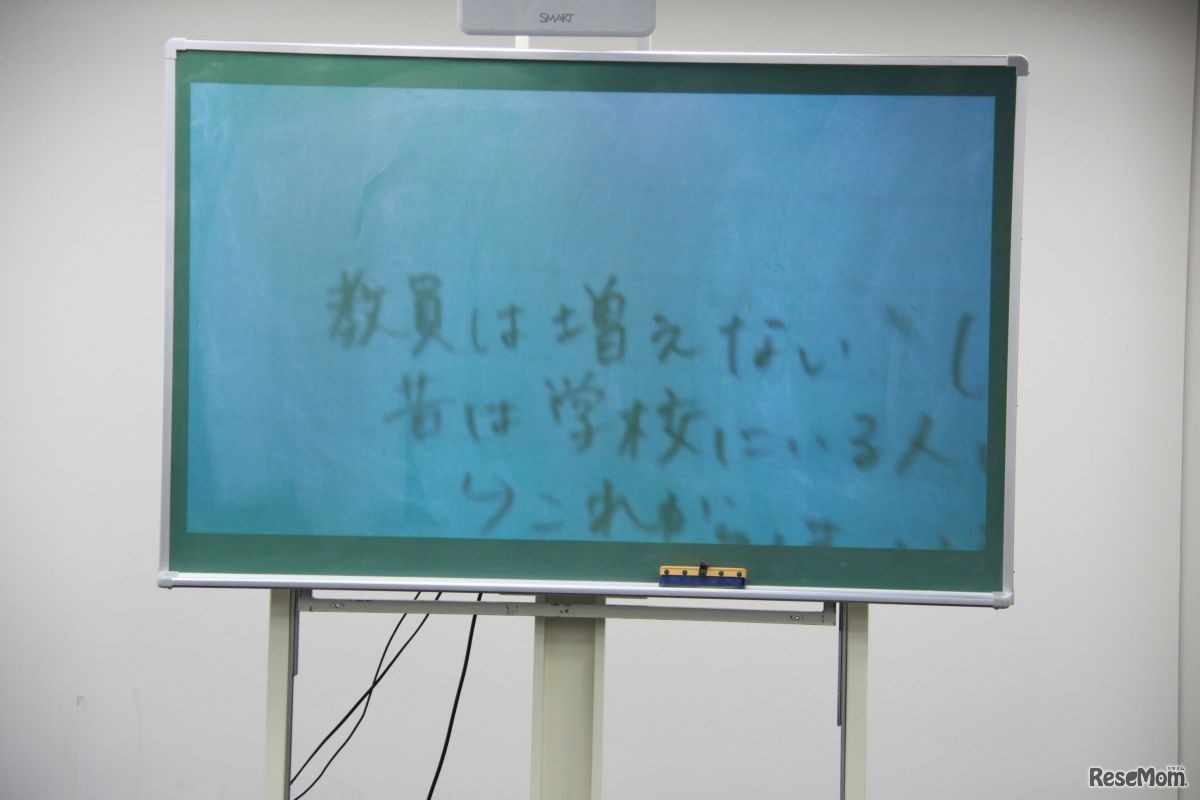 SMART
教員は増えない、し
昔は学校にいる人
→これから
リセマム
ReseMom